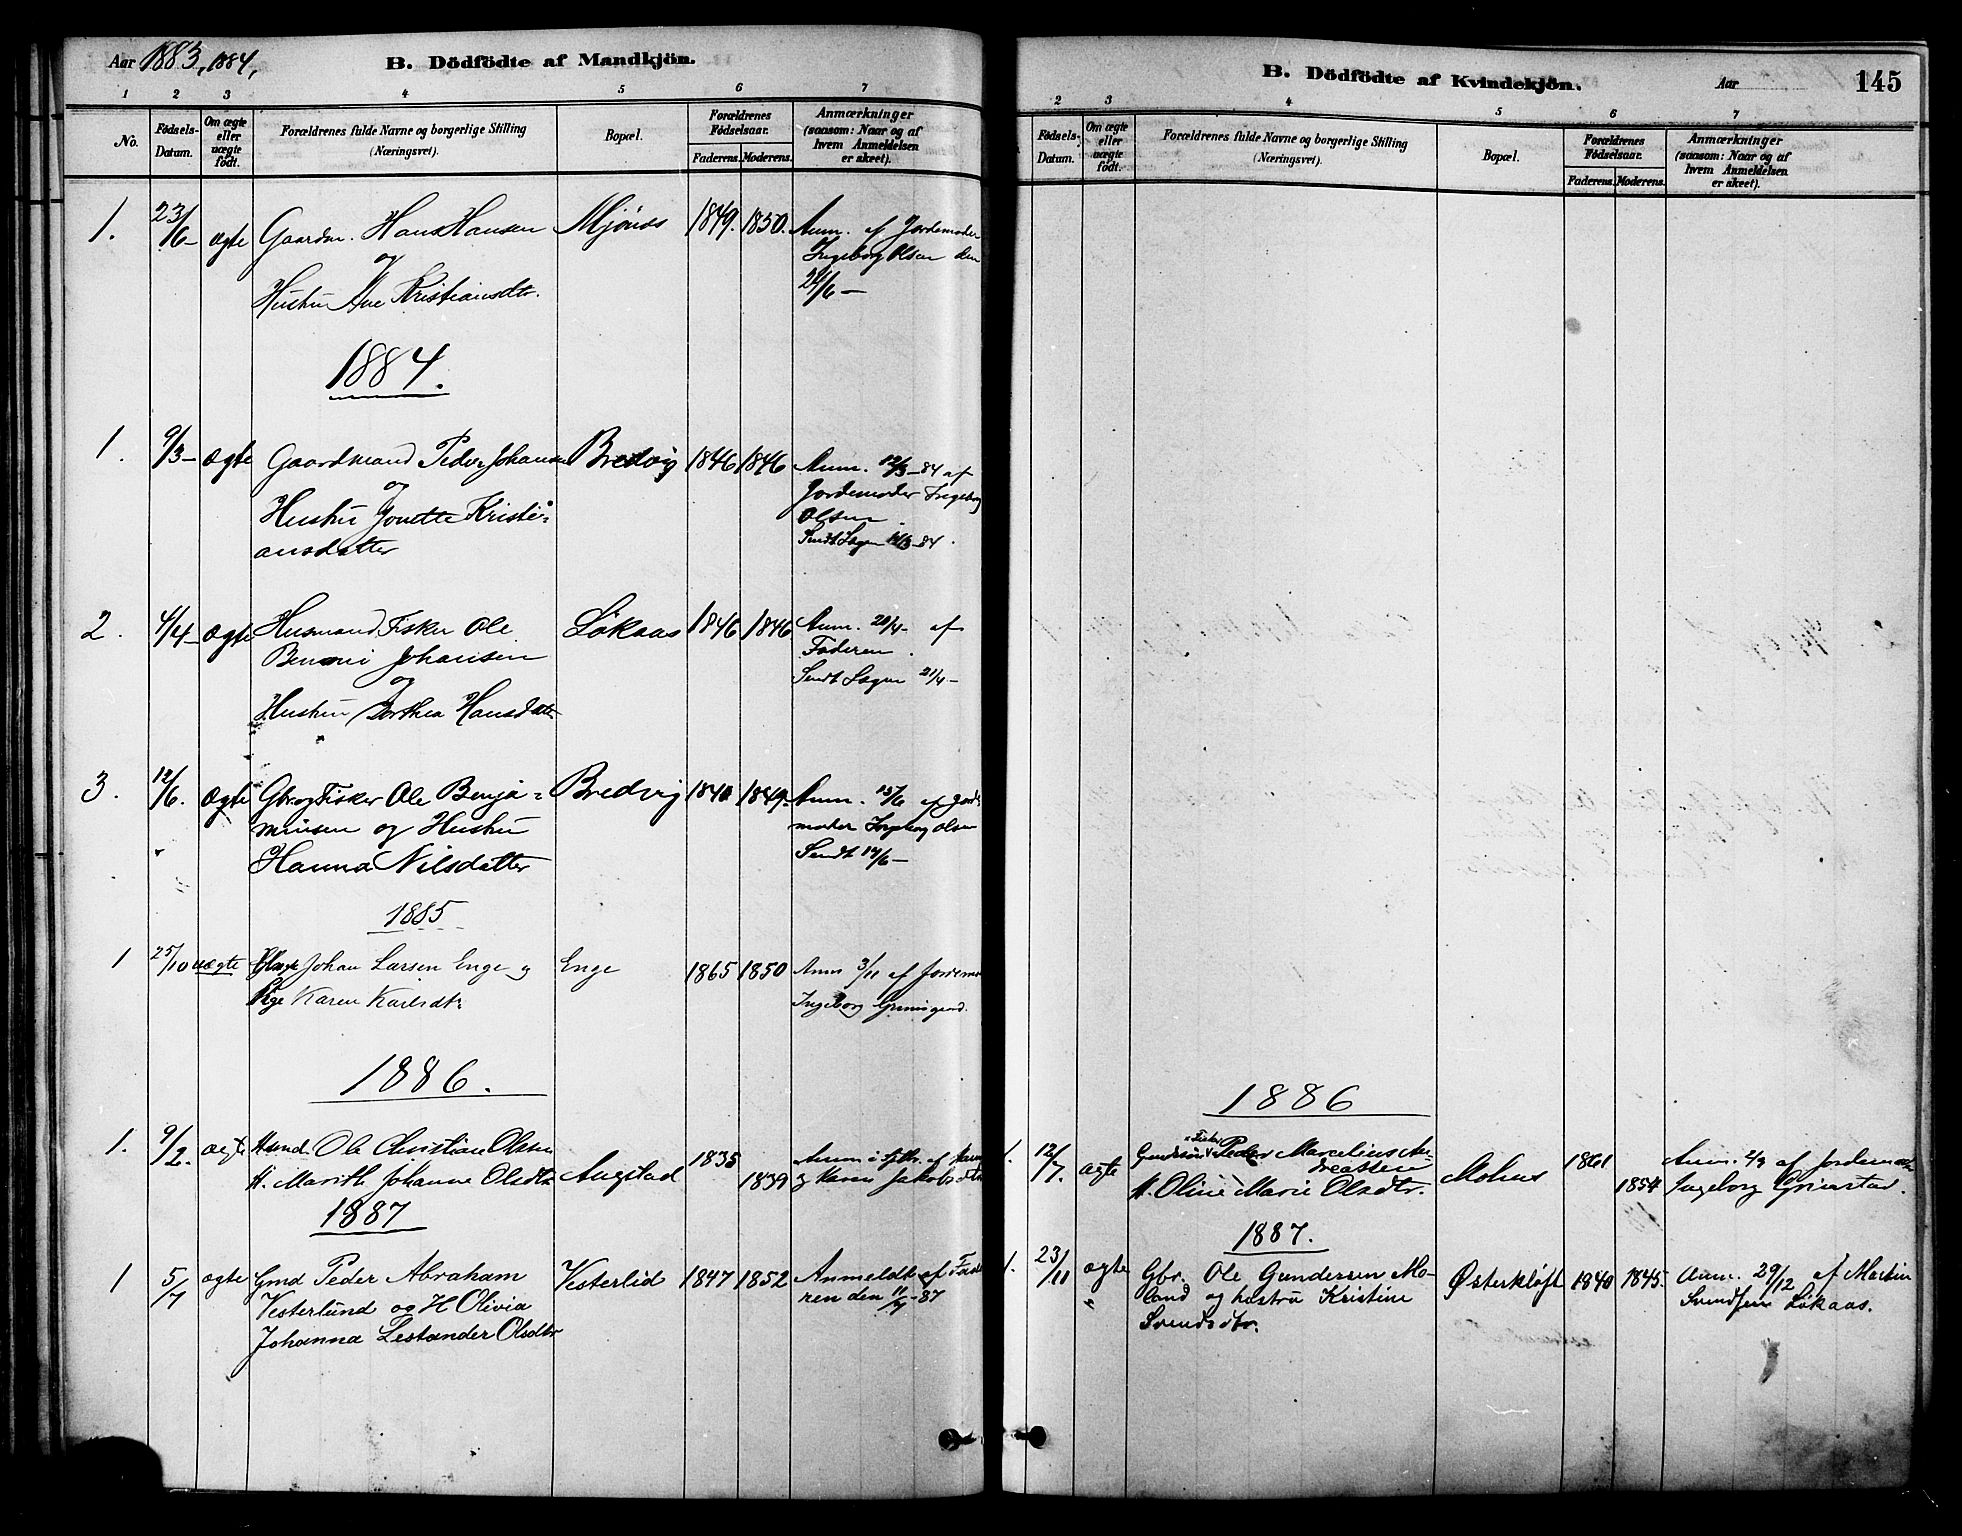 Aar 1883, 1884,
B. Dödfödte af Mandkjön.
1 2 3 4 5 6 7
No.
Fødsels-Datum.
Om ægte eller uægte født.
Forældrenes fulde Navne og borgerlige Stilling
(Næringsvei).
Bopæl.
Forældrenes Fødselsaar.
Faderens. Moderens.
Anmærkninger
(saasom: Naar og af
hvem Anmeldelsen
er skeet).
1. 23/6- ægte Gaardm. Hans Hansen Mjønes 1849. 1850. Anm. af Jordemoder
og Ingeborg Olsen den
Hustru Ane Kristiansdtr. 24/6 —
1884.
1. 9/3- ægte Gaardmand Peder Johansen Bredvig 1846 1846 Anm. 12/3-84 af
og Jordemoder Ingeborg
Hustru Jonette Kristi- Olsen.
ansdatter Sendt Lagen 14/3-84.
2. 4/4- ægte Husmand Fisker Ole Løkaas 1846 1846 Anm. 20/4- af
Benoni Johansen Faderen.
og Sendt Lagen 21/4-
Hustru Dorthea Hansdatter
3. 12/6. ægte Gbr og Fisker Ole Benja- Bredvig 1840 1849- Anm. 15/6 af Jorde
minsen og Hustru moder Ingeborg Olsen
Hanna Nilsdatter Sendt 17/6-
1885
1 25/10 uægte Johan Larsen Enge og Enge 1865 1850 Anm 3/11 af Jordemo
Pige Karen Karlsdtr Ingeborg
1886.
1. 9/2. ægte Hsmd. Ole Christian Olsen 1835 Anm i
H. Marith Johanne Olsdtr Augstad 1839 og Karen Jakobsdtr
1887
1 5/7 ægte Gmd Peder Abraham Vesterlid 1847 1852 Anmeldt af Fade
Vesterlund og H Olivia ren den 11/7-87
Johanna Lestander Olsdtr
B. Dödfödte af Kvindekjön.
Aar
145
2 3 4 5 6 7
Fødsels-Datum.
Om ægte eller uægte født.
Forældrenes fulde Navne og borgerlige Stilling
(Næringsvei).
Bopæl.
Forældrenes Fødselsaar.
Faderens. Moderens.
Anmærkninger
(saasom: Naar og af
hvem Anmeldelsen
er skeet).
1886
1. 12/7. ægte Peder Marcelius An- 1861 Anm. af Jordemoder
dreassen
H. Oline Marie Olsdtr. 1854 Ingeborg Grimstad.
1887.
1. 23/11 ægte Gbr. Ole Gundersen Mo- Østerkløft 1840 1845. Anm. 29/12 af Martin
land og hustru Kristine Svendsen Løkaas.
Svendsdtr.